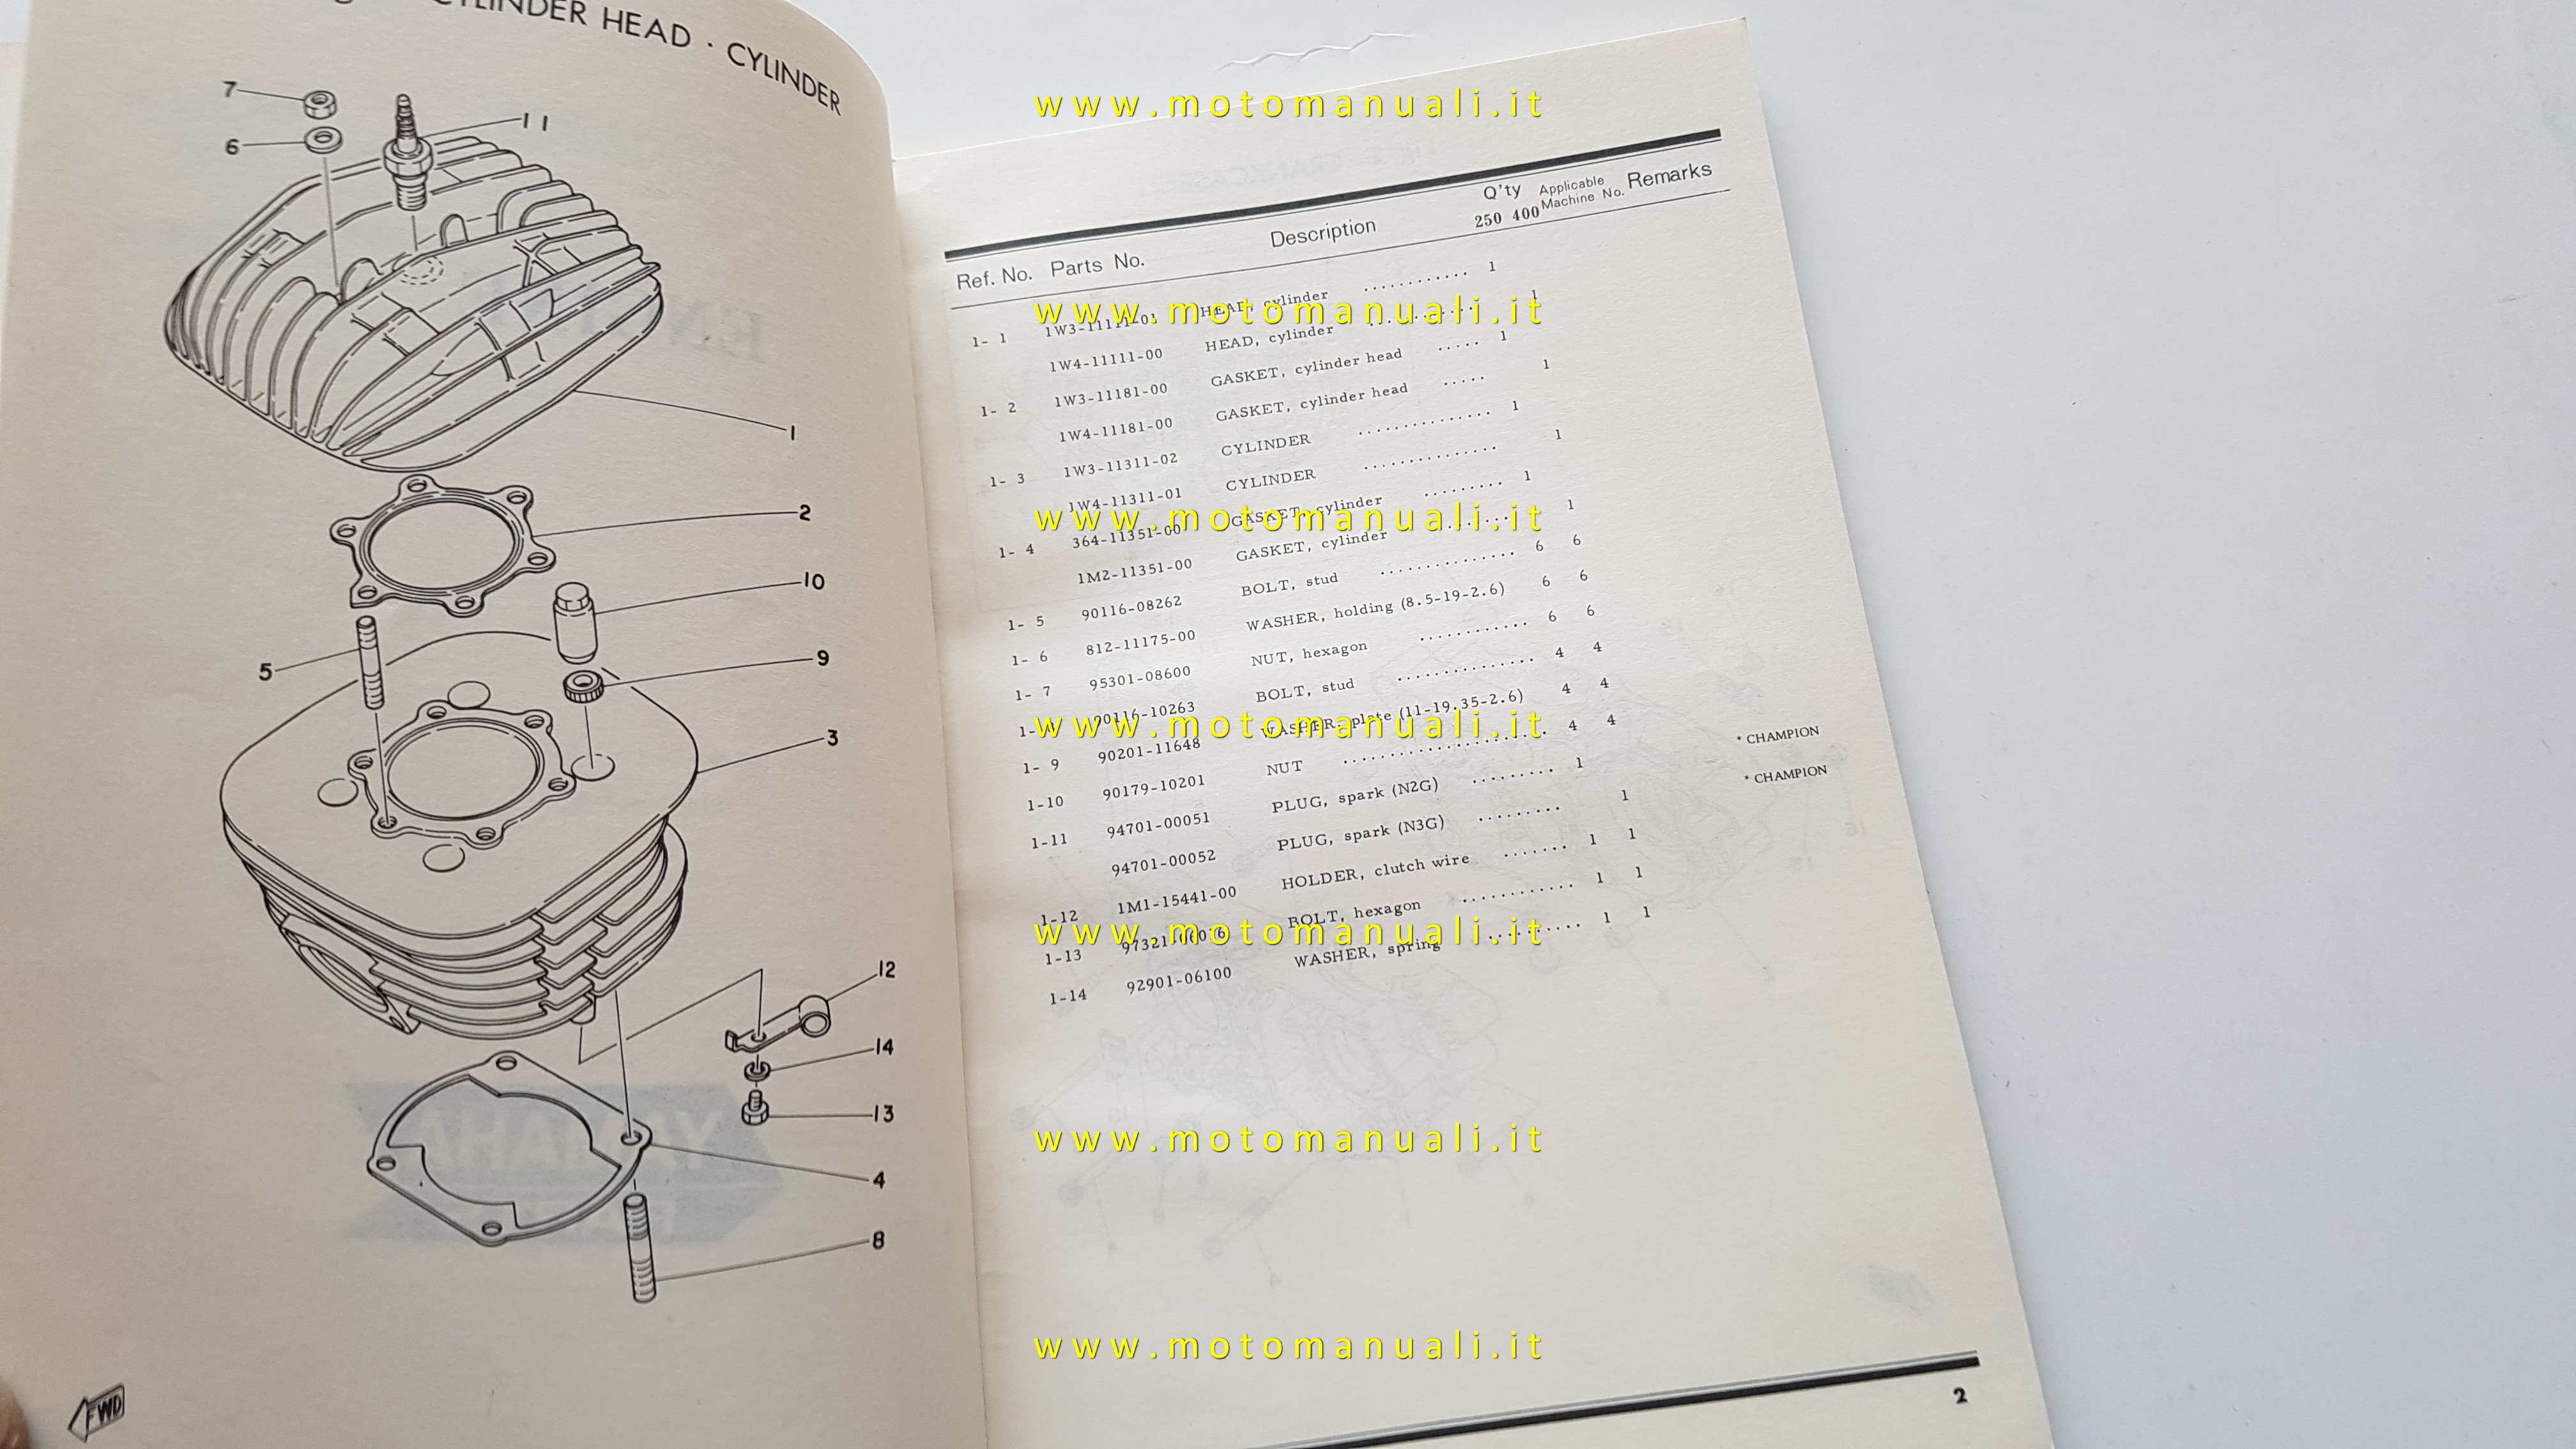 CYLINDER HEAD · CYLINDER
7
6
11
1
2
10
5
9
3
12
14
13
4
8
FWD
www.motomanuali.it
Ref. No. Parts No. Description Q'ty Applicable Machine No. Remarks
250 400
1- 1 1W3-11111-01 HEAD, cylinder ............ 1
www.motomanuali.it
1W4-11111-00 HEAD, cylinder ............ 1
1- 2 1W3-11181-00 GASKET, cylinder head ..... 1
1W4-11181-00 GASKET, cylinder head ..... 1
1- 3 1W3-11311-02 CYLINDER ............... 1
1W4-11311-01 CYLINDER ............... 1
1- 4 364-11351-00 GASKET, cylinder ......... 1
www.motomanuali.it
1M2-11351-00 GASKET, cylinder ......... 1
1- 5 90116-08262 BOLT, stud ............... 6 6
1- 6 812-11175-00 WASHER, holding (8.5-19-2.6) 6 6
1- 7 95301-08600 NUT, hexagon ............ 6 6
90116-10263 BOLT, stud ............... 4 4
www.motomanuali.it
1- 9 90201-11648 WASHER, plate (11-19.35-2.6) 4 4
1-10 90179-10201 NUT ...................... 4 4
1-11 94701-00051 PLUG, spark (N2G) ......... 1 * CHAMPION
94701-00052 PLUG, spark (N3G) ......... 1 * CHAMPION
1-12 1M1-15441-00 HOLDER, clutch wire ....... 1 1
1-13 BOLT, hexagon ............ 1 1
www.motomanuali.it
1-14 92901-06100 WASHER, spring .......... 1 1
www.motomanuali.it
www.motomanuali.it
2